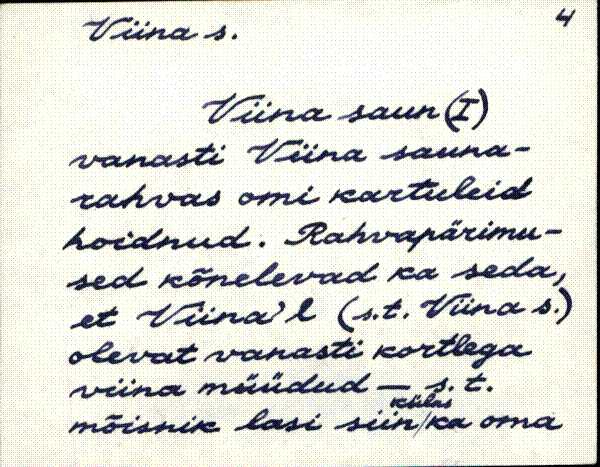 Viina s.
4
Viina saun (I)
vanasti Viina sauna-
rahvas omi kartuleid
hoidnud. Rahvapärimu-
sed kõnelevad ka seda,
et Viina'l (s.t. Viina s.)
olevat vanasti kortlega
viina müüdud — s.t.
mõisnik lasi siin / külas ka oma